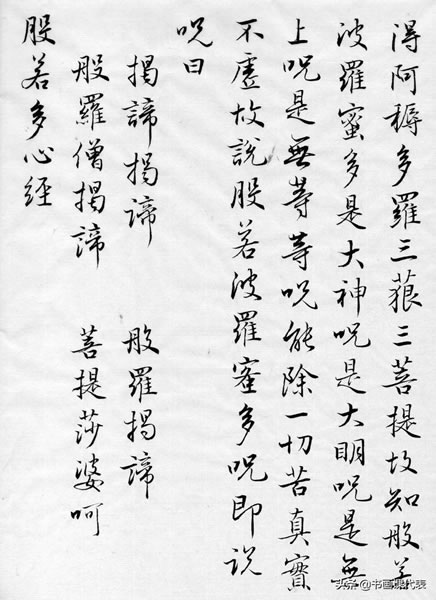 得阿耨多羅三藐三菩提故知般若
波羅蜜多是大神咒是大明咒是無
上咒是無等等咒能除一切苦真實
不虛故說般若波羅蜜多咒即說
咒曰
揭諦揭諦 般羅揭諦
般羅僧揭諦 菩提莎婆呵
般若多心經
头条@书画课代表